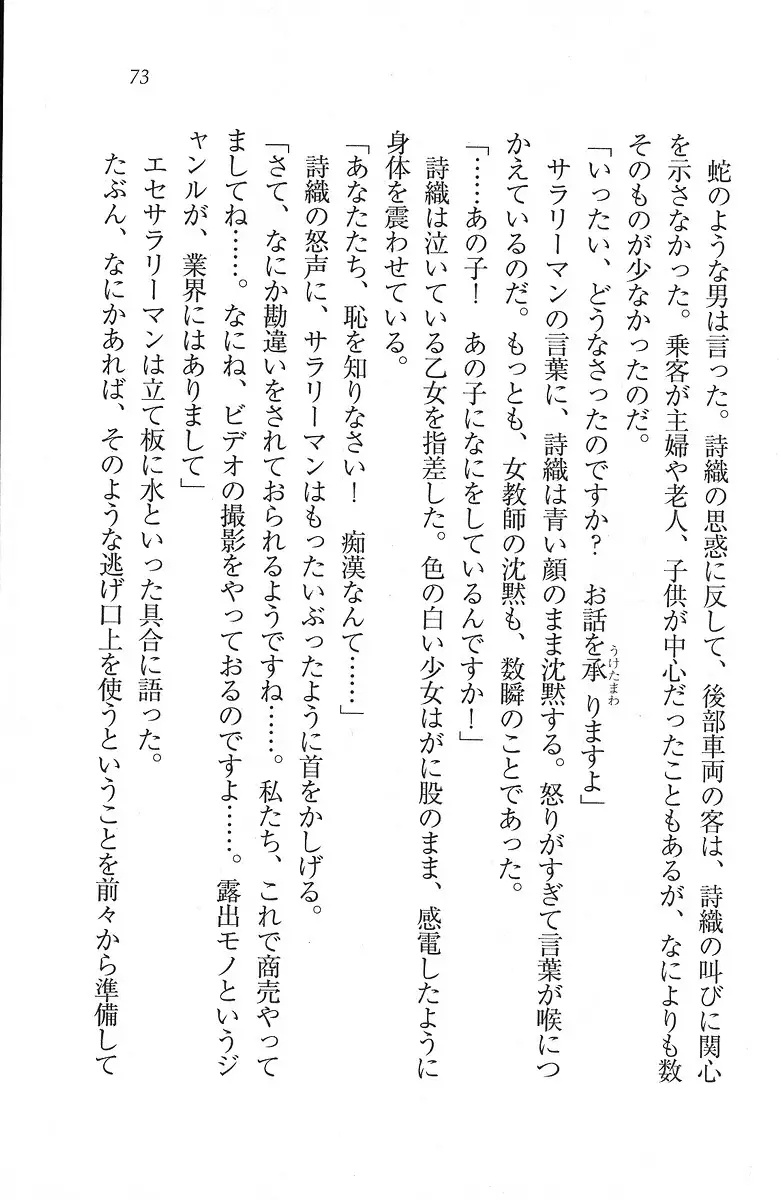 73
蛇のような男は言った。詩織の思惑に反して、後部車両の客は、詩織の叫びに関心
を示さなかった。乗客が主婦や老人、子供が中心だったこともあるが、なによりも数
そのものが少なかったのだ。
「いったい、どうなさったのですか？　お話を承りますよ」
うけたまわ
サラリーマンの言葉に、詩織は青い顔のまま沈黙する。怒りがすぎて言葉が喉につ
かえているのだ。もっとも、女教師の沈黙も、数瞬のことであった。
「……あの子！　あの子になにをしているんですか！」
詩織は泣いている乙女を指差した。色の白い少女はがに股のまま、感電したように
身体を震わせている。
「あなたたち、恥を知りなさい！　痴漢なんて……」
詩織の怒声に、サラリーマンはもったいぶったように首をかしげる。
「さて、なにか勘違いをされておられるようですね……。私たち、これで商売やって
ましてね……。なにね、ビデオの撮影をやっておるのですよ……。露出モノというジ
ャンルが、業界にはありまして」
エセサラリーマンは立て板に水といった具合に語った。
たぶん、なにかあれば、そのような逃げ口上を使うということを前々から準備して